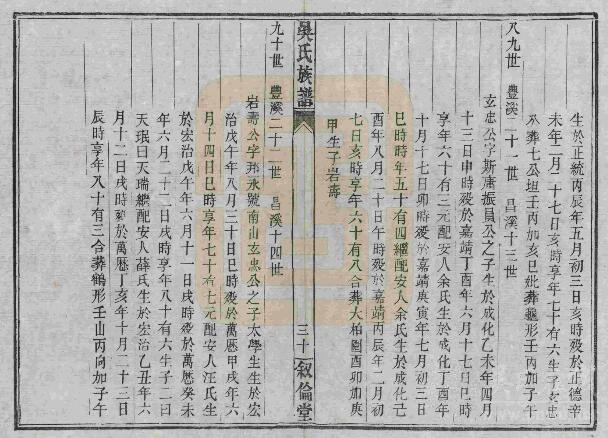 生於正統丙辰年五月初三日亥時歿於正德辛
未年二月二十七日亥時享年七十有六生子玄忠
公葬七公坦壬丙加亥巳妣葬龜形壬丙加子午
八九世 豐溪二十一世 昌溪十三世
玄忠公字斯肅振員公之子生於成化乙未年四月
十三日申時歿於嘉靖丁酉年六月十七日巳時
享年六十有三元配安人余氏生於成化丁酉年
十月十七日卯時歿於嘉靖庚寅年七月初三日
巳時時年五十有四繼配安人余氏生於成化己
酉年八月二十日午時歿於嘉靖丙辰年二月初
七日亥時享年六十有八合葬大柏園酉卯加庚
甲生子岩壽
吳氏族譜
三十 敘倫堂
九十世 豐溪二十二世 昌溪十四世
岩壽公字號南山玄忠公之子太學生生於宏
治戊午年八月三十日巳時歿於萬曆甲戌年六
月十四日巳時享年七十有七元配安人汪氏生
於宏治戊午年六月十一日戌時歿於萬曆癸未
年六月二十二日戌時享年八十有六生子二曰
天珉曰天瑞繼配安人薛氏生於宏治乙丑年六
月十二日戌時歿於萬曆丁亥年十月二十三日
辰時享年八十有三合葬鶴形壬山丙向加子午